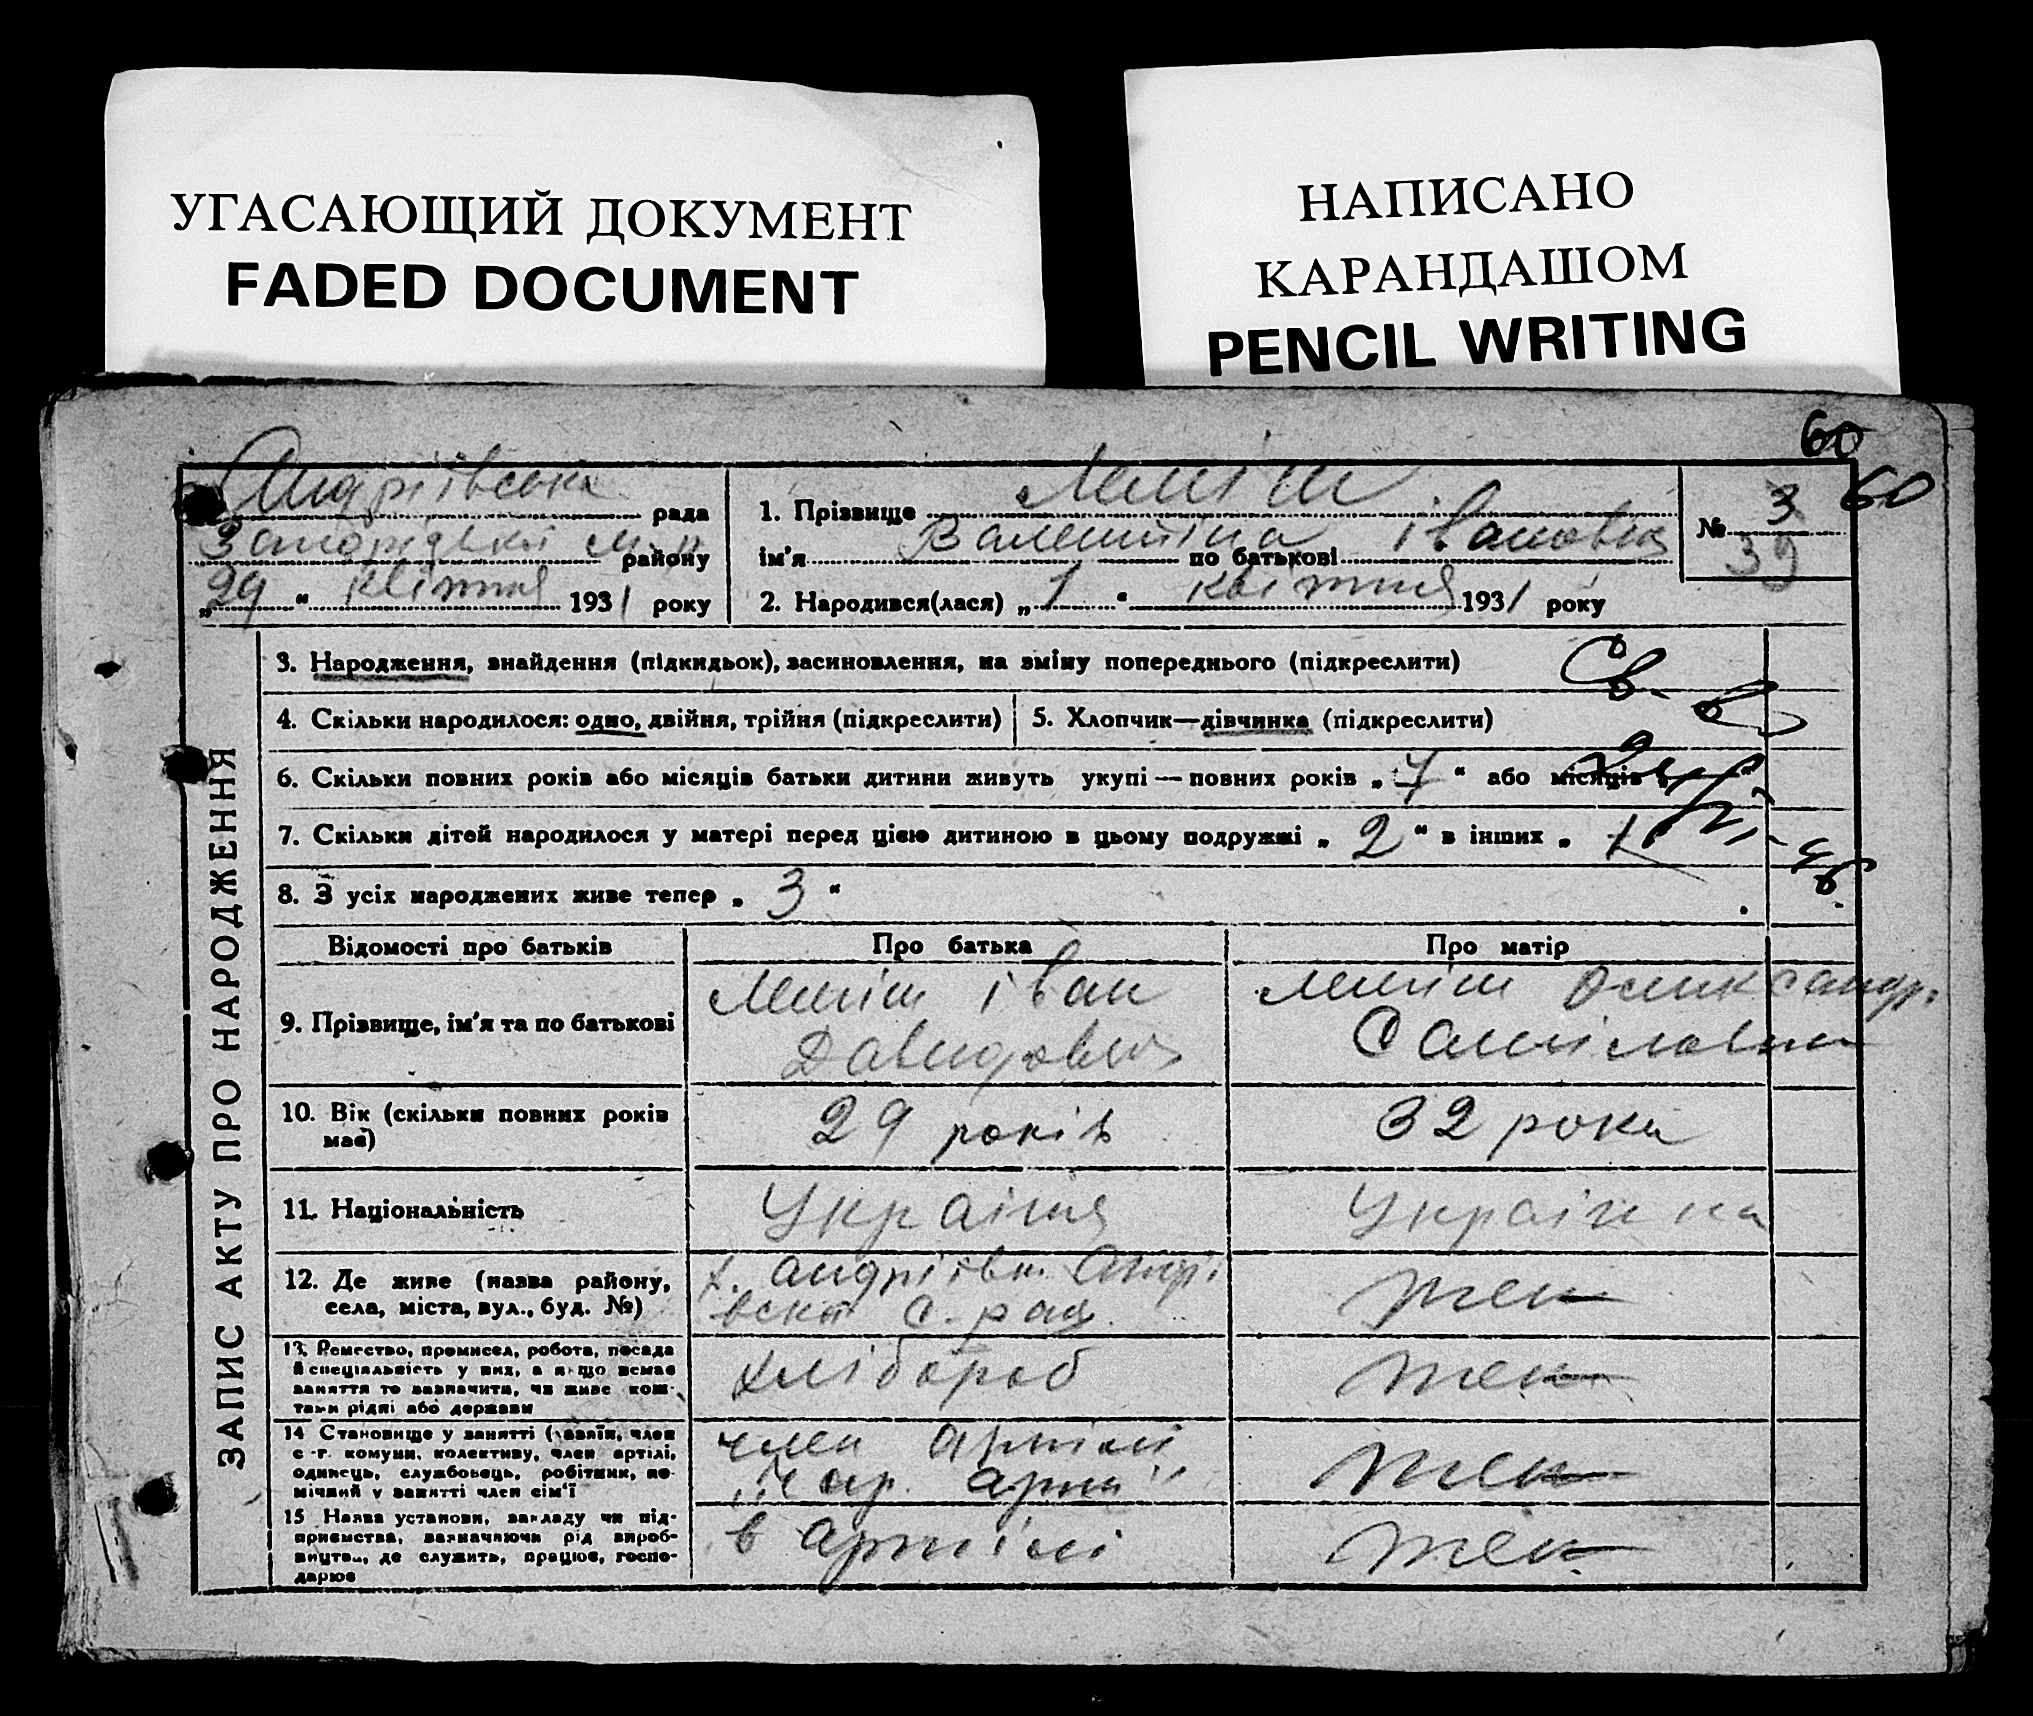 УГАСАЮЩИЙ ДОКУМЕНТ
FADED DOCUMENT
НАПИСАНО
КАРАНДАШОМ
PENCIL WRITING
60
60
Андріївська рада
Запорізької району
„29“ квітня 1931 року
1. Прізвище
ім'я Валентина по батькові Івановна
2. Народився(лася) „1“ квітня 1931 року
№ 3
39
ЗАПИС АКТУ ПРО НАРОДЖЕННЯ
3. Народження, знайдення (підкидьок), засиновлення, на зміну попереднього (підкреслити)
4. Скільки народилося: одно, двійня, трійня (підкреслити)
5. Хлопчик—дівчинка (підкреслити)
6. Скільки повних років або місяців батьки дитини живуть укупі — повних років „ “ або місяців
7. Скільки дітей народилося у матері перед цією дитиною в цьому подружжі „2“ в інших „1
8. З усіх народжених живе тепер „3“
Відомості про батьків
Про батька
Про матір
9. Прізвище, ім'я та по батькові
Іван
Давидович
Самійловна
10. Вік (скільки повних років
має)
29 років
32 роки
11. Національність
Украінця
Украінка
12. Де живе (назва району,
села, міста, вул., буд. №)
х. Андріївк. Андрі
вской с. рад.
13. Ремество, промисел, робота, посада
й спеціальність у них, а якщо немає
заняття то зазначити, чи живе кош-
тами рідні або держави
хлібороб
14 Становище у занятті (хазяїн, член
с.-г. комуни, колективу, член артілі,
одинець, службовець, робітник, по-
мічний у занятті член сім'ї
член артілі
15 Назва установи, закладу чи під-
приємства, зазначаючи рід вироб-
ництва, де служить, працює, госпо-
дарює
в артілі